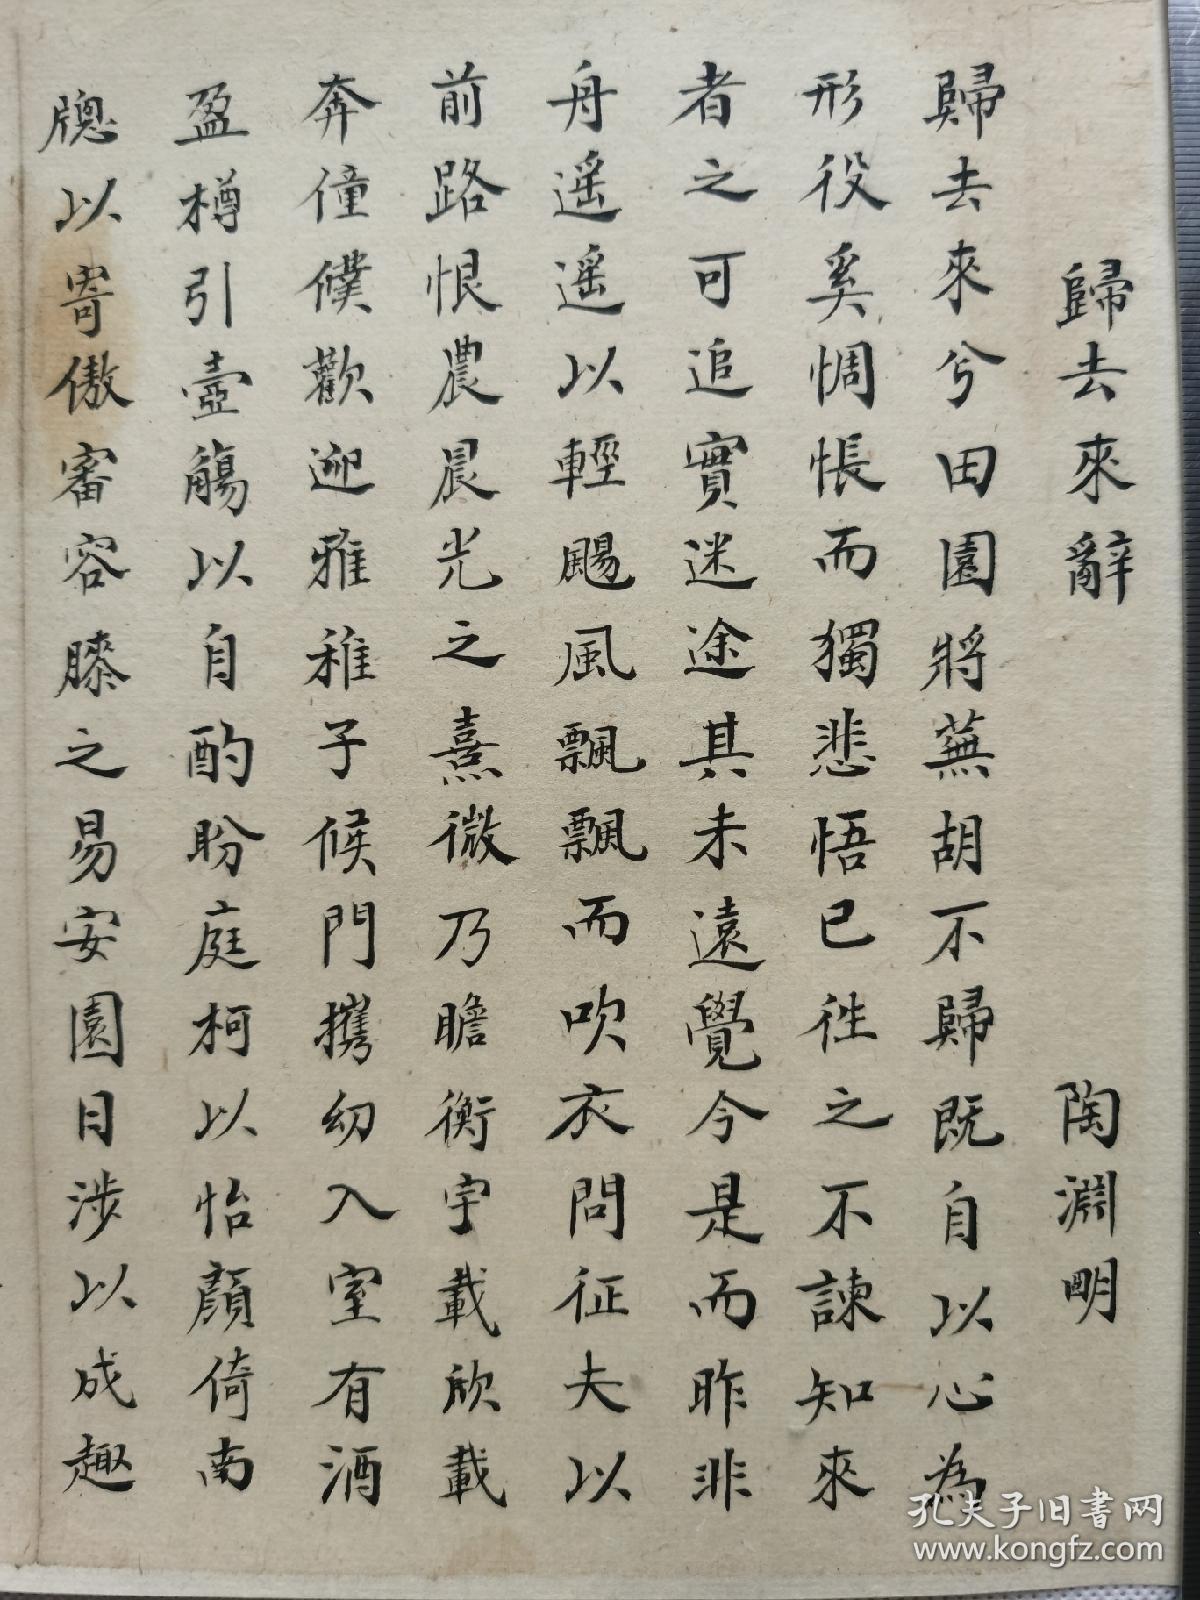 歸去來辭 陶淵明
歸去來兮田園將蕪胡不歸既自以心為
形役奚惆悵而獨悲悟已徃之不諫知來
者之可追實迷途其未遠覺今是而昨非
舟遥遥以輕颺風飄飄而吹衣問征夫以
前路恨農晨光之熹微乃瞻衡宇載欣載
奔僮僕歡迎雅稚子候門攜幼入室有酒
盈樽引壺觴以自酌盼庭柯以怡顏倚南
牕以寄傲審容膝之易安園日涉以成趣
孔夫子旧书网
www.kongfz.com